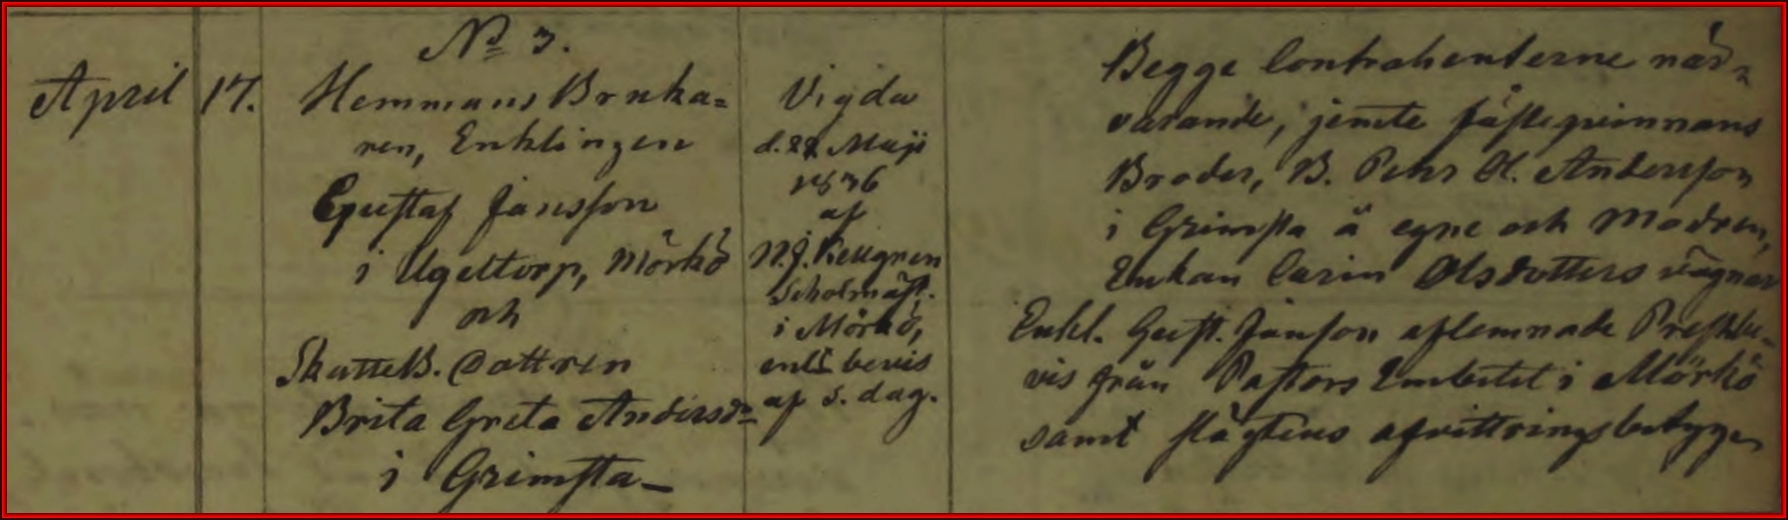 No 3.
April 17.
Hemmans Bruka=
ren, Enklingen
Gustaf Jansson
i Ugeltorp, Mörkö
och
Skatteb. Dottren
Brita Greta Andersd=
i Grimsta—
Vigda
d. 22 Maji
1836
af
N. J. Kellgren
Scholmäst.
i Mörkö,
enl. bevis
af s. dag.
Begge Contrahenterne när=
varande, jemte fästeqvinnans
Broder, B. Pehr O. Andersson
i Grimsta å egne och Modren,
Enkan Carin Olsdotters vägnar
Enkl. Gust. Janson aflemnade Prestbe=
vis från Pastors Embetet i Mörkö
samt slägtens afvittringsbetyg